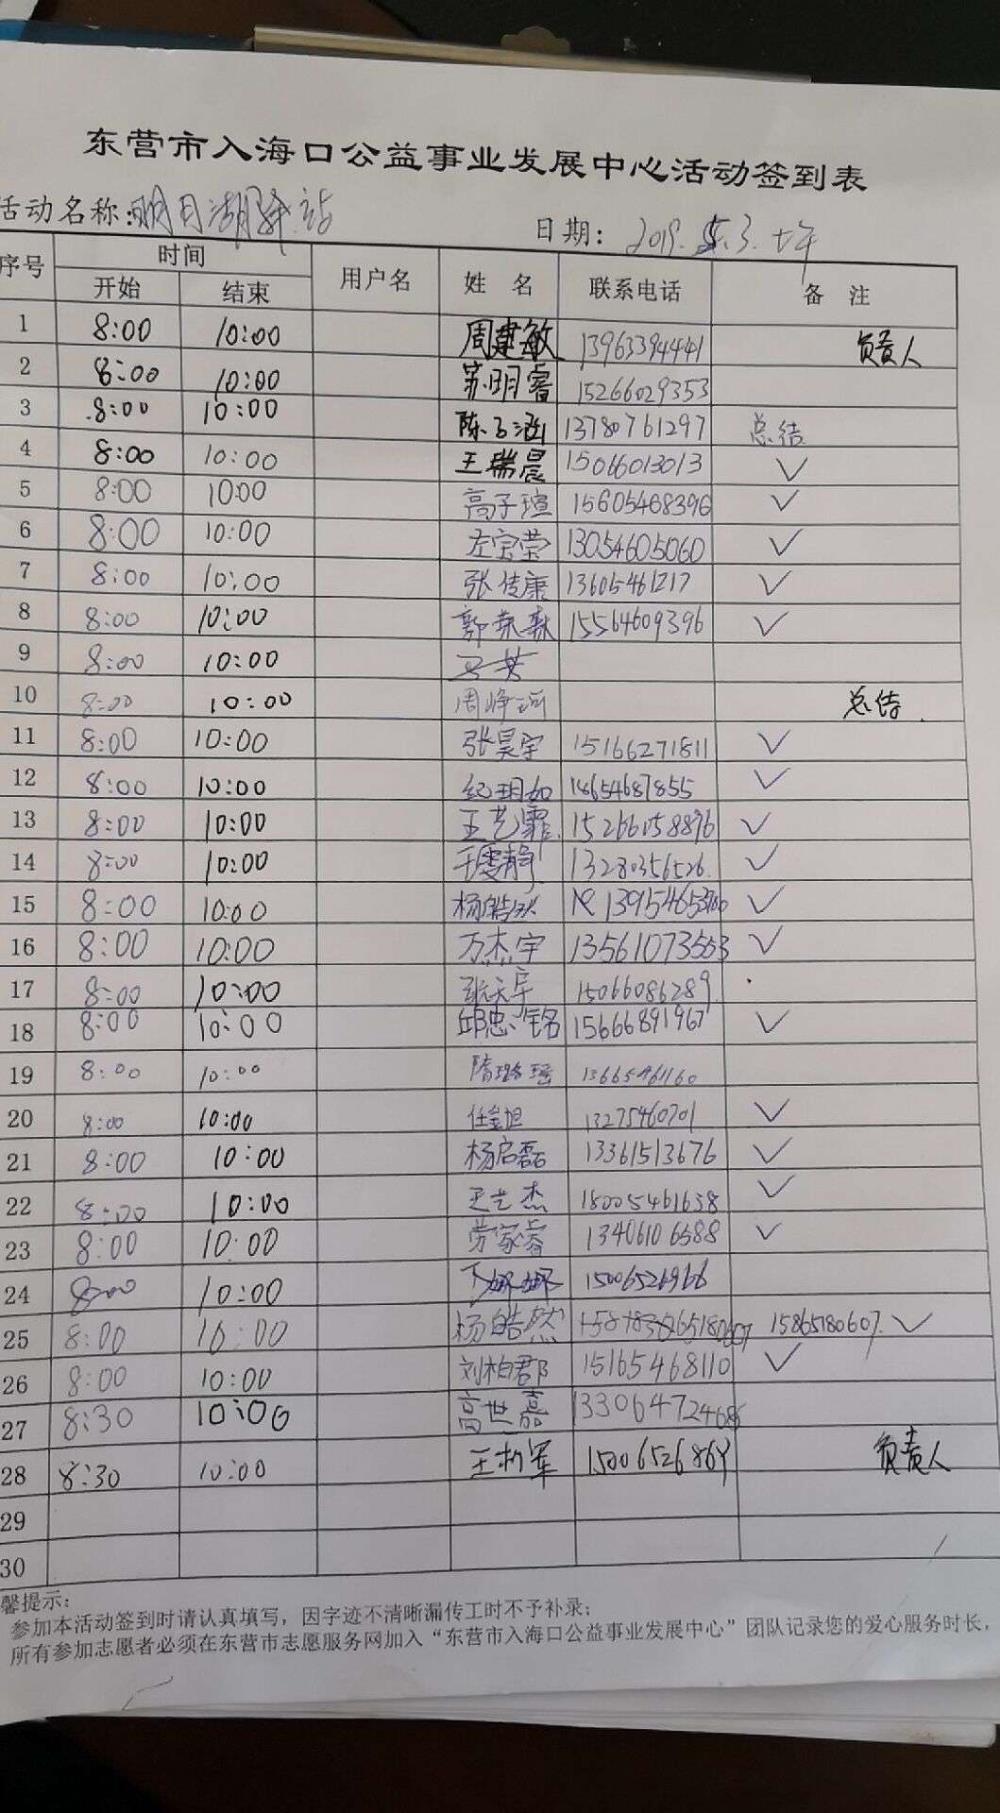 东营市入海口公益事业发展中心活动签到表
活动名称：明月湖驿站 日期： 2019.5.3.上午
序号 时间 用户名 姓 名 联系电话 备 注
开始 结束
1 8:00 10:00 周建敏 13963394441 负责人
2 8:00 10:00 苏明睿 15266029353
3 8:00 10:00 陈子涵 13780761297 总结
4 8:00 10:00 王瑞晨 15066013013 ✓
5 8:00 10:00 高子瑄 15605468396 ✓
6 8:00 10:00 左宝莹 13054605060 ✓
7 8:00 10:00 张佳康 13605461217 ✓
8 8:00 10:00 郭荣森 15564609396 ✓
9 8:00 10:00
10 8:00 10:00 周峥 总结
11 8:00 10:00 张昊宇 15166271811 ✓
12 8:00 10:00 纪玥如 18654687855 ✓
13 8:00 10:00 王艺霏 15266058896 ✓
14 8:00 10:00 王雯静 13280356526 ✓
15 8:00 10:00 杨皓然 ✓
16 8:00 10:00 万杰宇 13561073553 ✓
17 8:00 10:00 张天宇 15066086289
18 8:00 10:00 邱忠铭 15666891967 ✓
19 8:00 10:00 隋璐瑶 13665461160
20 8:00 10:00 任金旭 13275460701 ✓
21 8:00 10:00 杨启磊 13361513676 ✓
22 8:00 10:00 王艺杰 18005461638 ✓
23 8:00 10:00 劳家睿 13406106588 ✓
24 8:00 10:00 15006526966
25 8:00 10:00 杨皓然 15865180607 ✓
26 8:00 10:00 刘柏君 15165468110 ✓
27 8:30 10:00 高世嘉
28 8:30 10:00 王析军 15006526869 负责人
29
30
馨提示：
参加本活动签到时请认真填写，因字迹不清晰漏传工时不予补录；
所有参加志愿者必须在东营市志愿服务网加入“东营市入海口公益事业发展中心”团队记录您的爱心服务时长，